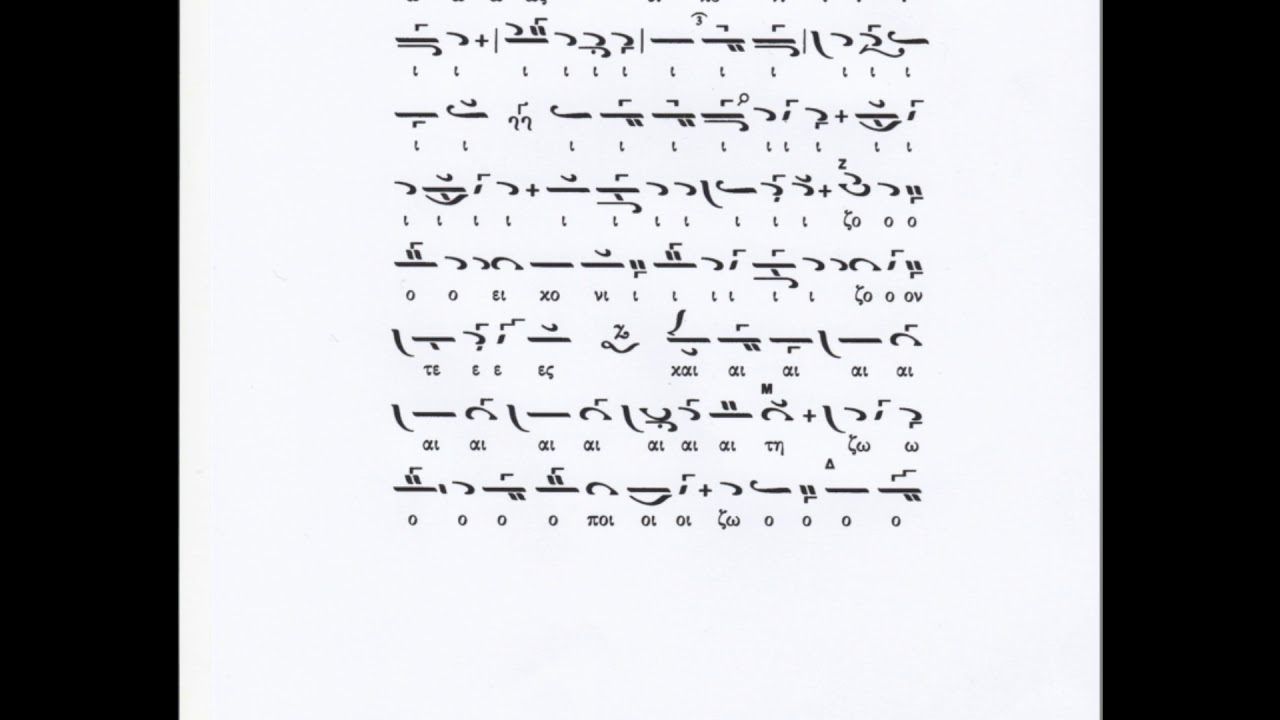 ι ι ι ι ι ι ι ι ι ι ι ι
ι ι ι ι ι ι ι ι ι ι ι
ι ι ι ι ι ι ι ι ι ι ι ζο ο ο
ο ο ει κο νι ι ι ι ι ι ι ζο ο ον
τε ε ε ες και αι αι αι αι
αι αι αι αι αι αι αι τη ζω ω
ο ο ο ο ποι οι οι ζω ο ο ο ο